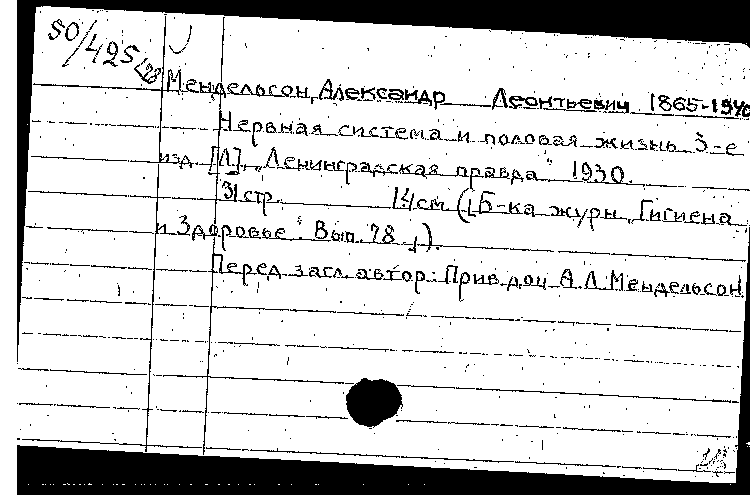 50/425
Мендельсон, Александр Леонтьевич 1865-1940
Нервная система и половая жизнь 3-е
изд. [Л], „Ленинградская правда" 1930.
31 стр. 14 см (Б-ка журн „Гигиена
и Здоровье". Вып. 78).
Перед загл. автор: Прив. доц А. Л. Мендельсон